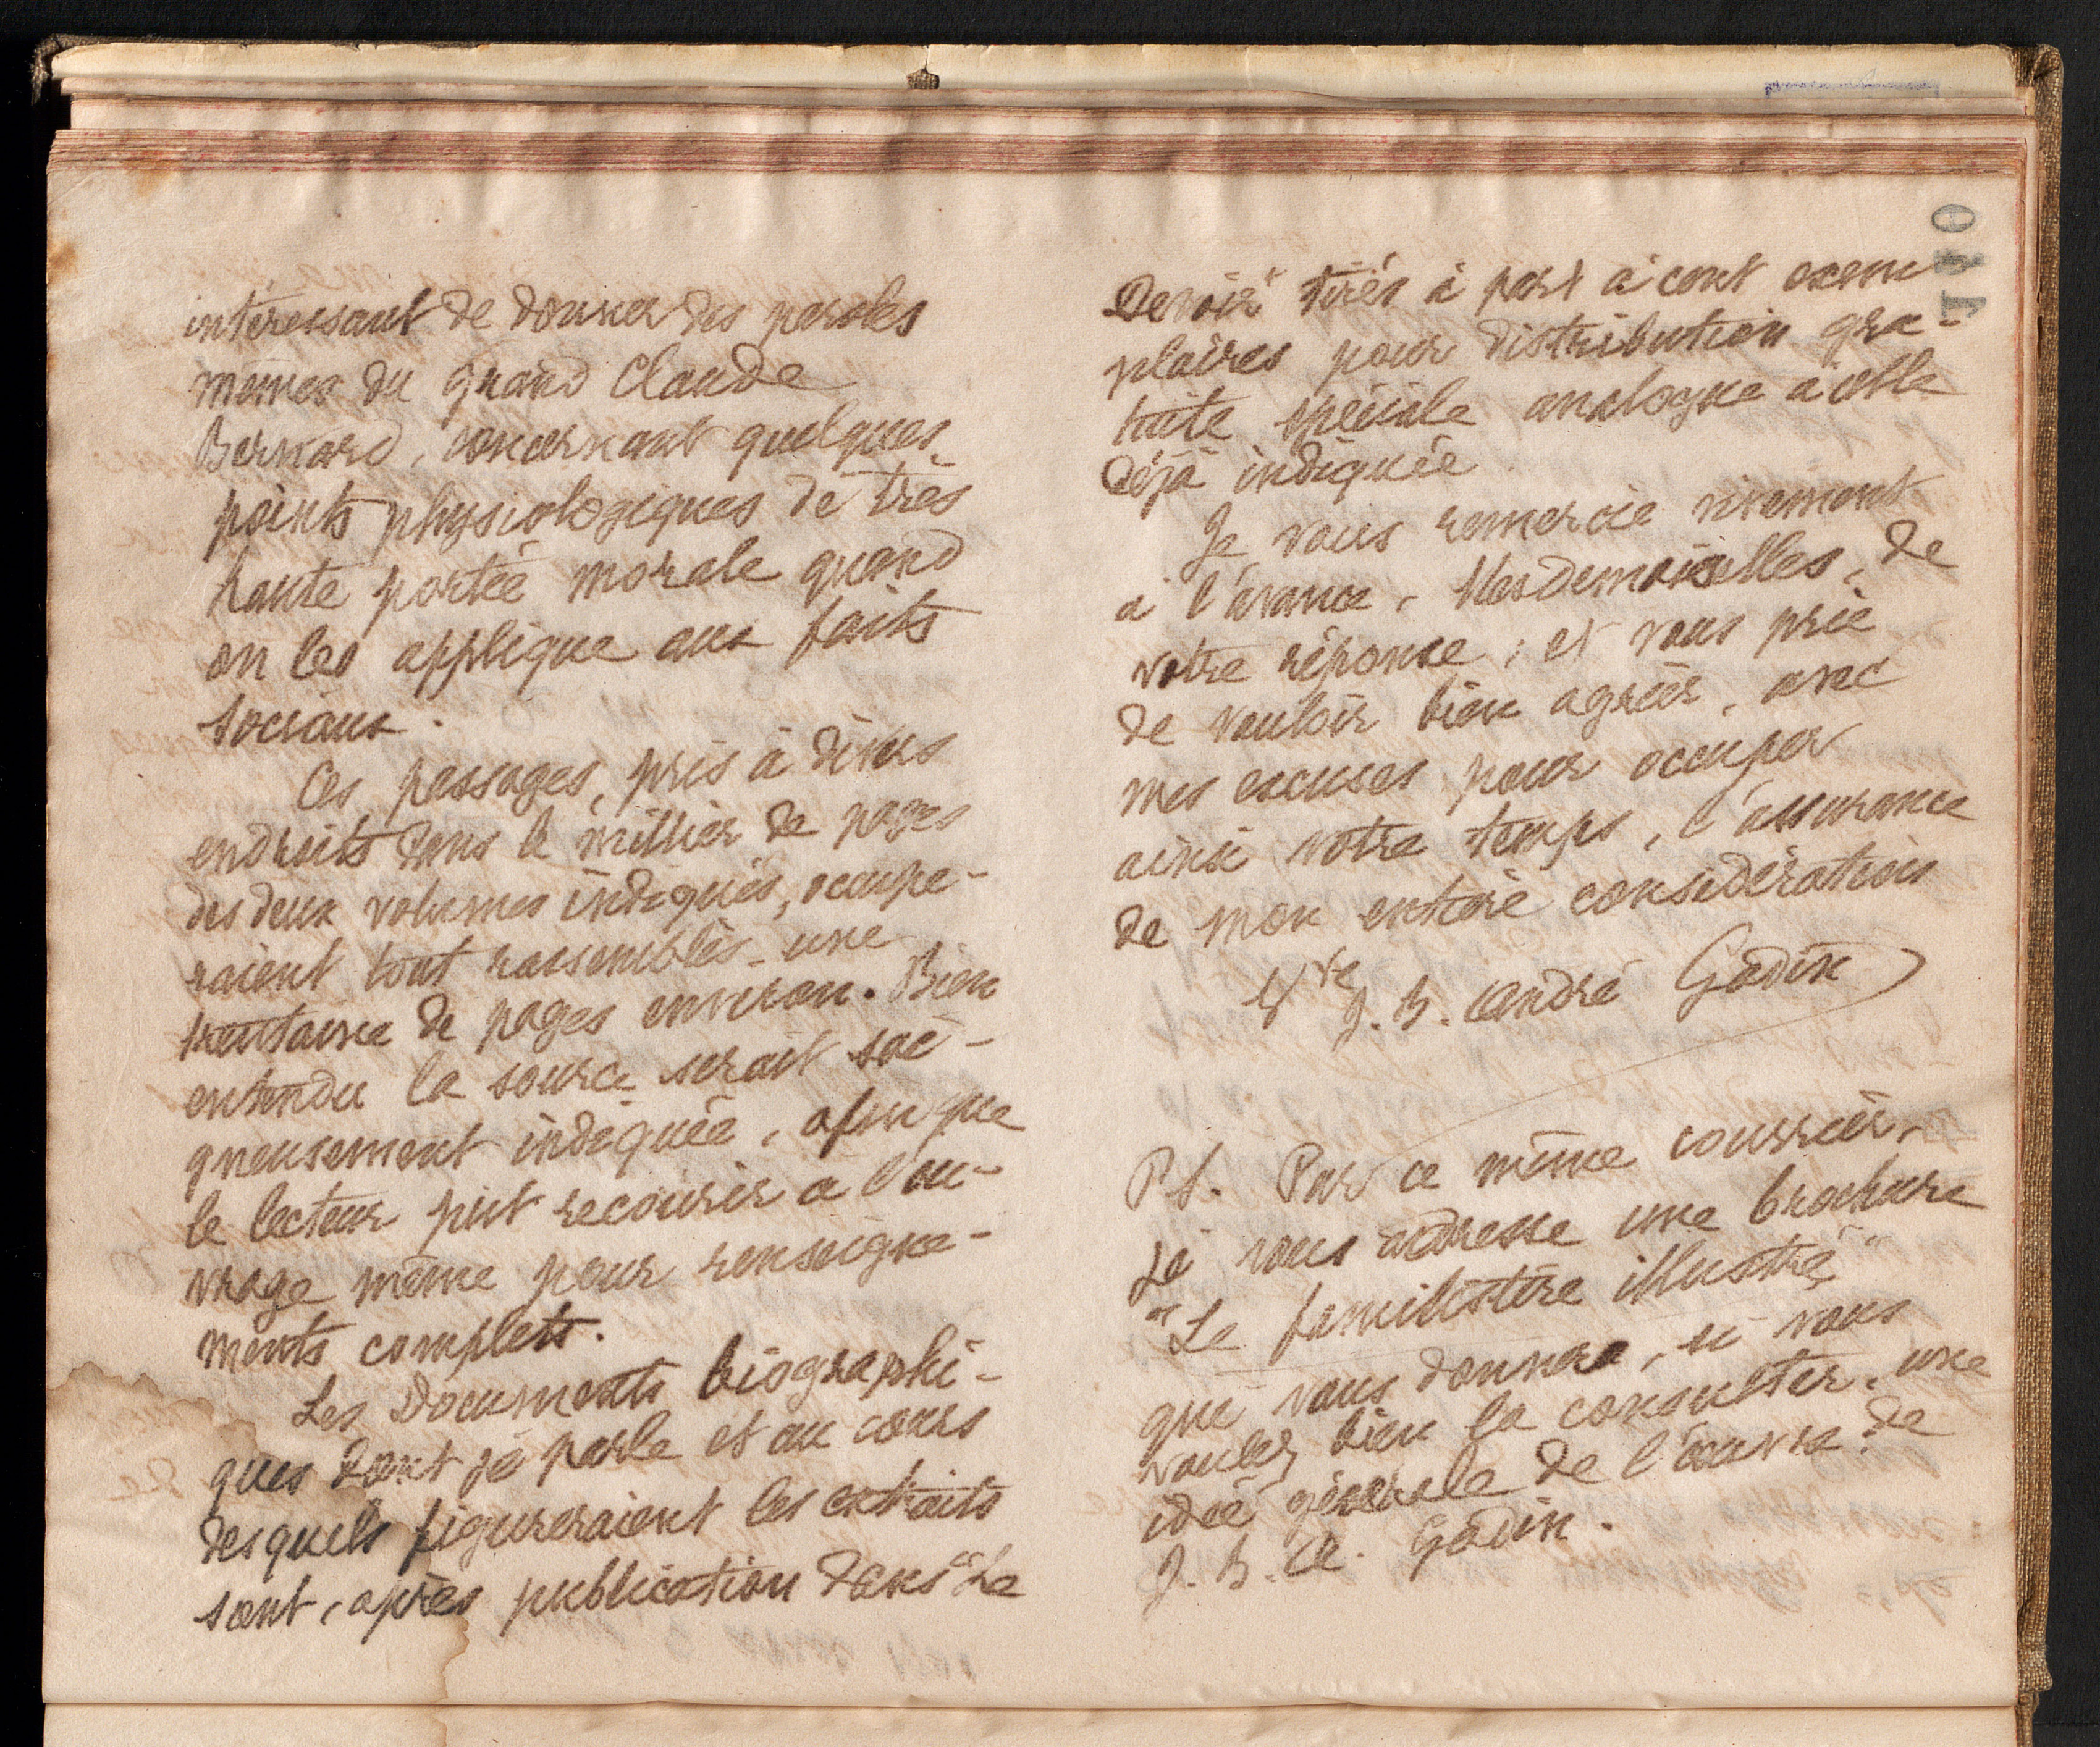 intéressant de donner des paroles
mêmes du grand Claude
Bernard, concernant quelques
points physiologiques de très
haute portée morale quand
on les applique aux faits
sociaux.
Ces passages, pris à divers
endroits dans le millier de pages
des deux volumes indiqués, occupe-
raient tout rassemblés une
trentaine de pages environ. Bien
entendu la source serait soi-
gneusement indiquée, afin que
le lecteur pût recourir à l'ou-
vrage même pour renseigne-
ments complets.
Les Documents biographi-
ques dont je parle et au cours
desquels figureraient les extraits
sont, après publication dans "Le
Devoir" tirés à part à cent exem
plaires pour distribution gra-
tuite spéciale analogue à celle
déjà indiquée
Je vous remercie vivement
à l'avance, Mesdemoiselles, de
votre réponse, et vous prie
de vouloir bien agréer, avec
mes excuses pour occuper
ainsi votre temps, l'assurance
de mon entière considération
Vve J. B. André Godin
PS. Par ce même courrier,
je vous adresse une brochure
"Le familistère illustré"
qui vous donnera, si vous
voulez bien la consulter, une
idée générale de l'œuvre de
J. B. A. Godin.
110